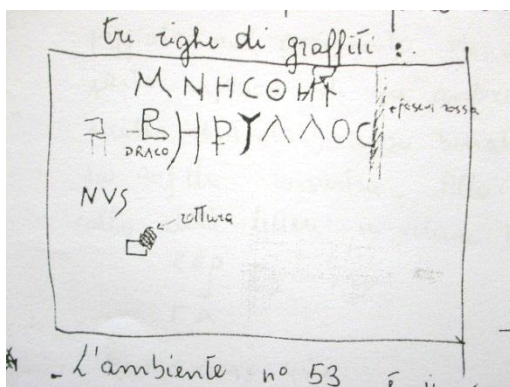 tre righe di graffiti :
ΜΝΗCΘΗ
ΒΗΡΥΛΛΟC
fascia rossa
DRACO
NVS
rottura
L'ambiente n° 53